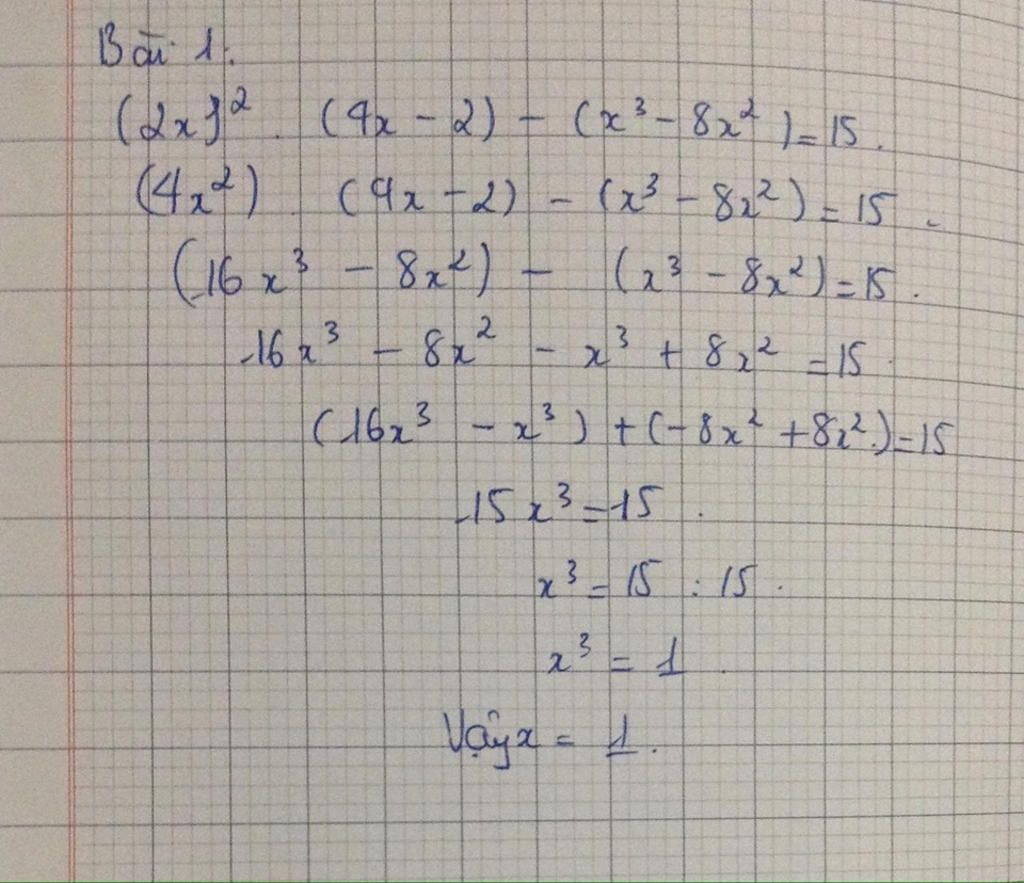 Bài 1:
(2x)² . (4x - 2) - (x³ - 8x²) = 15.
(4x²) . (4x - 2) - (x³ - 8x²) = 15.
(16x³ - 8x²) - (x³ - 8x²) = 15.
16x³ - 8x² - x³ + 8x² = 15
(16x³ - x³) + (-8x² + 8x²) = 15
15x³ = 15.
x³ = 15 : 15.
x³ = 1
Vậy x = 1.